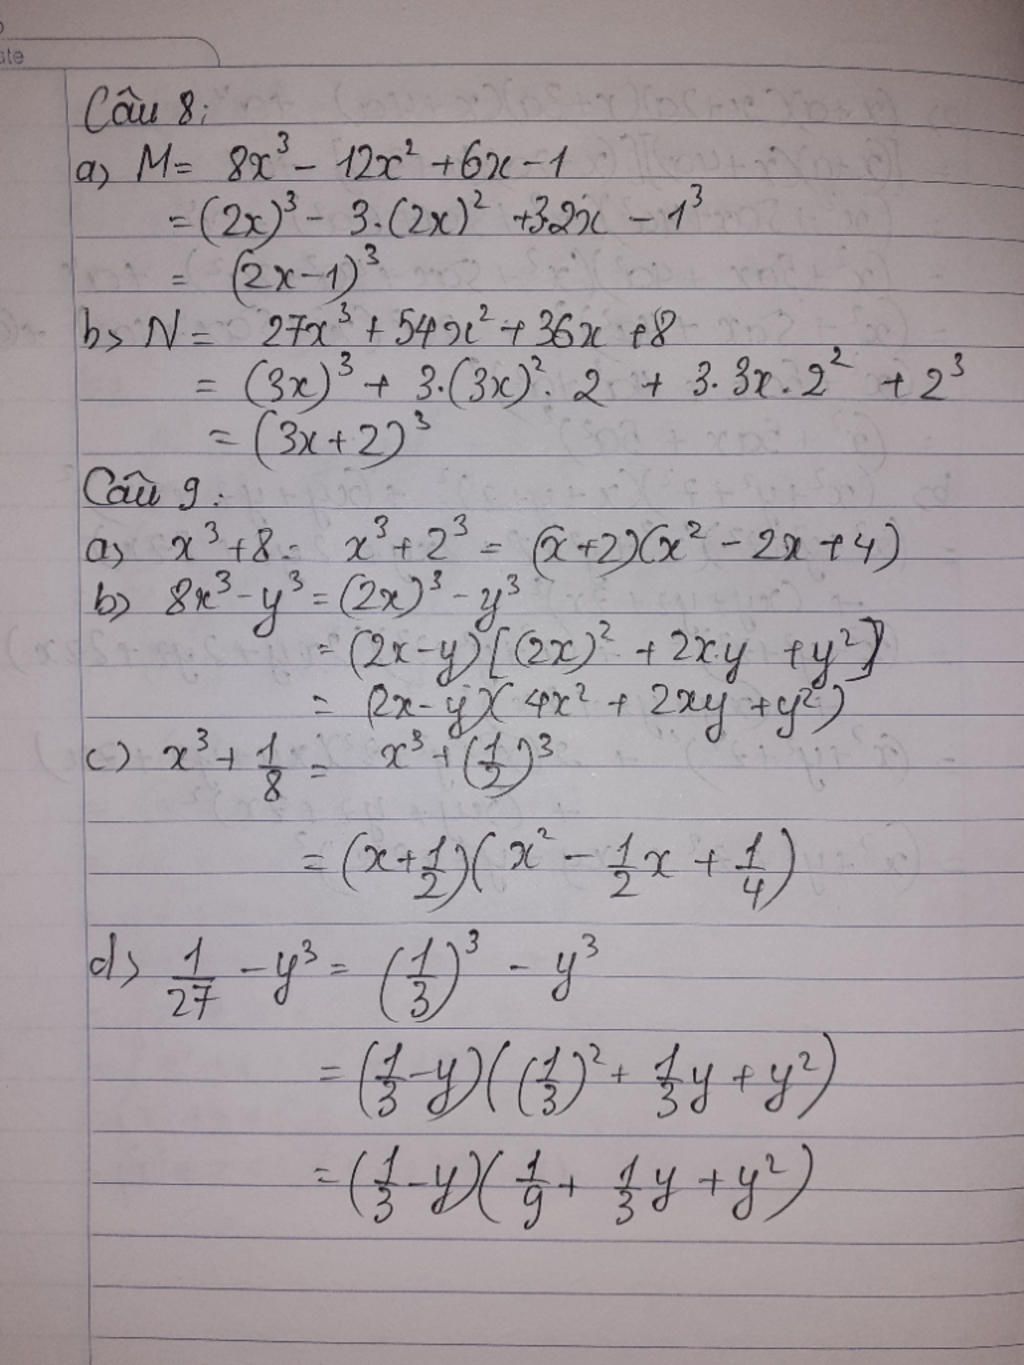 ate
Câu 8:
a) M = 8x³ - 12x² + 6x - 1
= (2x)³ - 3.(2x)² + 3.2x - 1³
= (2x-1)³
b) N = 27x³ + 54x² + 36x + 8
= (3x)³ + 3.(3x)².2 + 3.3x.2² + 2³
= (3x+2)³
Câu 9:
a) x³ + 8 = x³ + 2³ = (x+2)(x² - 2x + 4)
b) 8x³ - y³ = (2x)³ - y³
= (2x-y)[(2x)² + 2x.y + y²]
= (2x-y)(4x² + 2xy + y²)
c) x³ + 1/8 = x³ + (1/2)³
= (x + 1/2)(x² - 1/2x + 1/4)
d) 1/27 - y³ = (1/3)³ - y³
= (1/3 - y)((1/3)² + 1/3y + y²)
= (1/3 - y)(1/9 + 1/3y + y²)